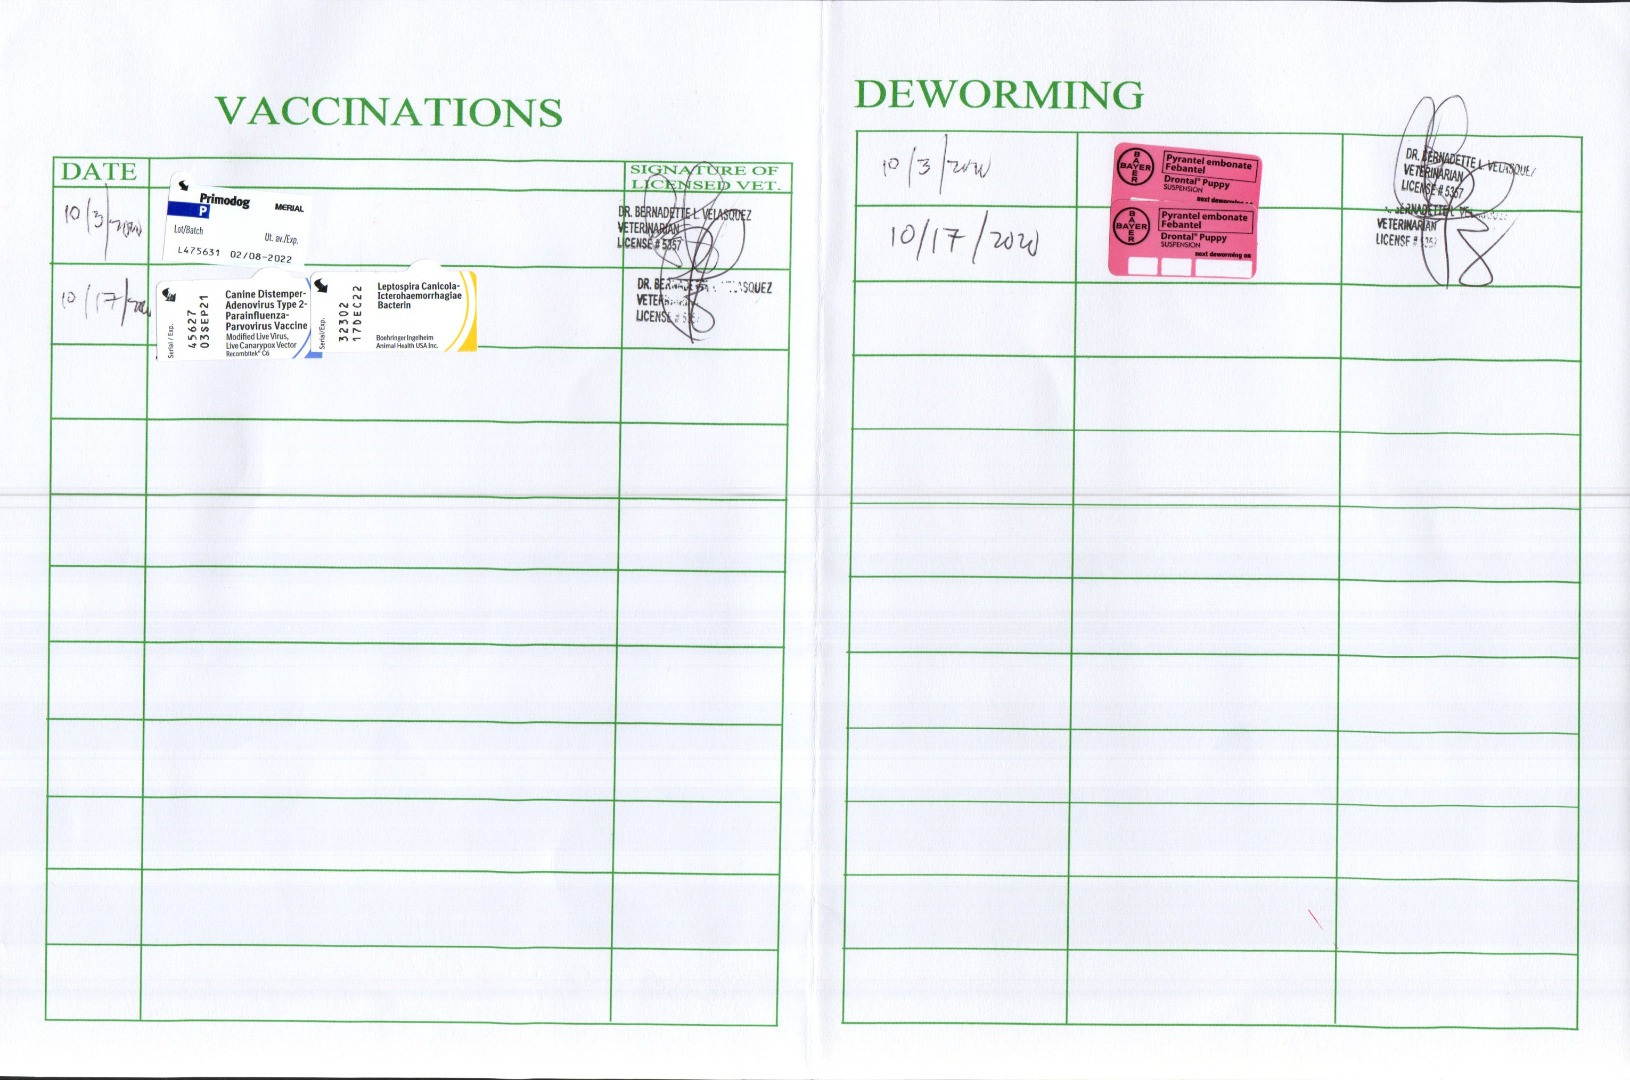 VACCINATIONS
DATE
SIGNATURE OF
LICENSED VET.
10/3/2020
Primodog
P
MERIAL
Lot/Batch
Ut. av./Exp.
L475631 02/08-2022
DR. BERNADETTE L. VELASQUEZ
VETERINARIAN
LICENSE # 5357
10/17/2020
Serial / Exp.
45627
03SEP21
Canine Distemper-
Adenovirus Type 2-
Parainfluenza-
Parvovirus Vaccine
Modified Live Virus,
Live Canarypox Vector
Recombitek® C6
Serial/Exp.
32302
17DEC22
Leptospira Canicola-
Icterohaemorrhagiae
Bacterin
Boehringer Ingelheim
Animal Health USA Inc.
DR.
LICENSE #
DEWORMING
10/3/2020
BAYER
BAYER
Pyrantel embonate
Febantel
Drontal® Puppy
SUSPENSION
next deworming
DR. BERNADETTE L. VELASQUEZ
VETERINARIAN
LICENSE # 5357
10/17/2020
BAYER
BAYER
Pyrantel embonate
Febantel
Drontal® Puppy
SUSPENSION
next deworming on
BERNADETTE L.
VETERINARIAN
LICENSE #